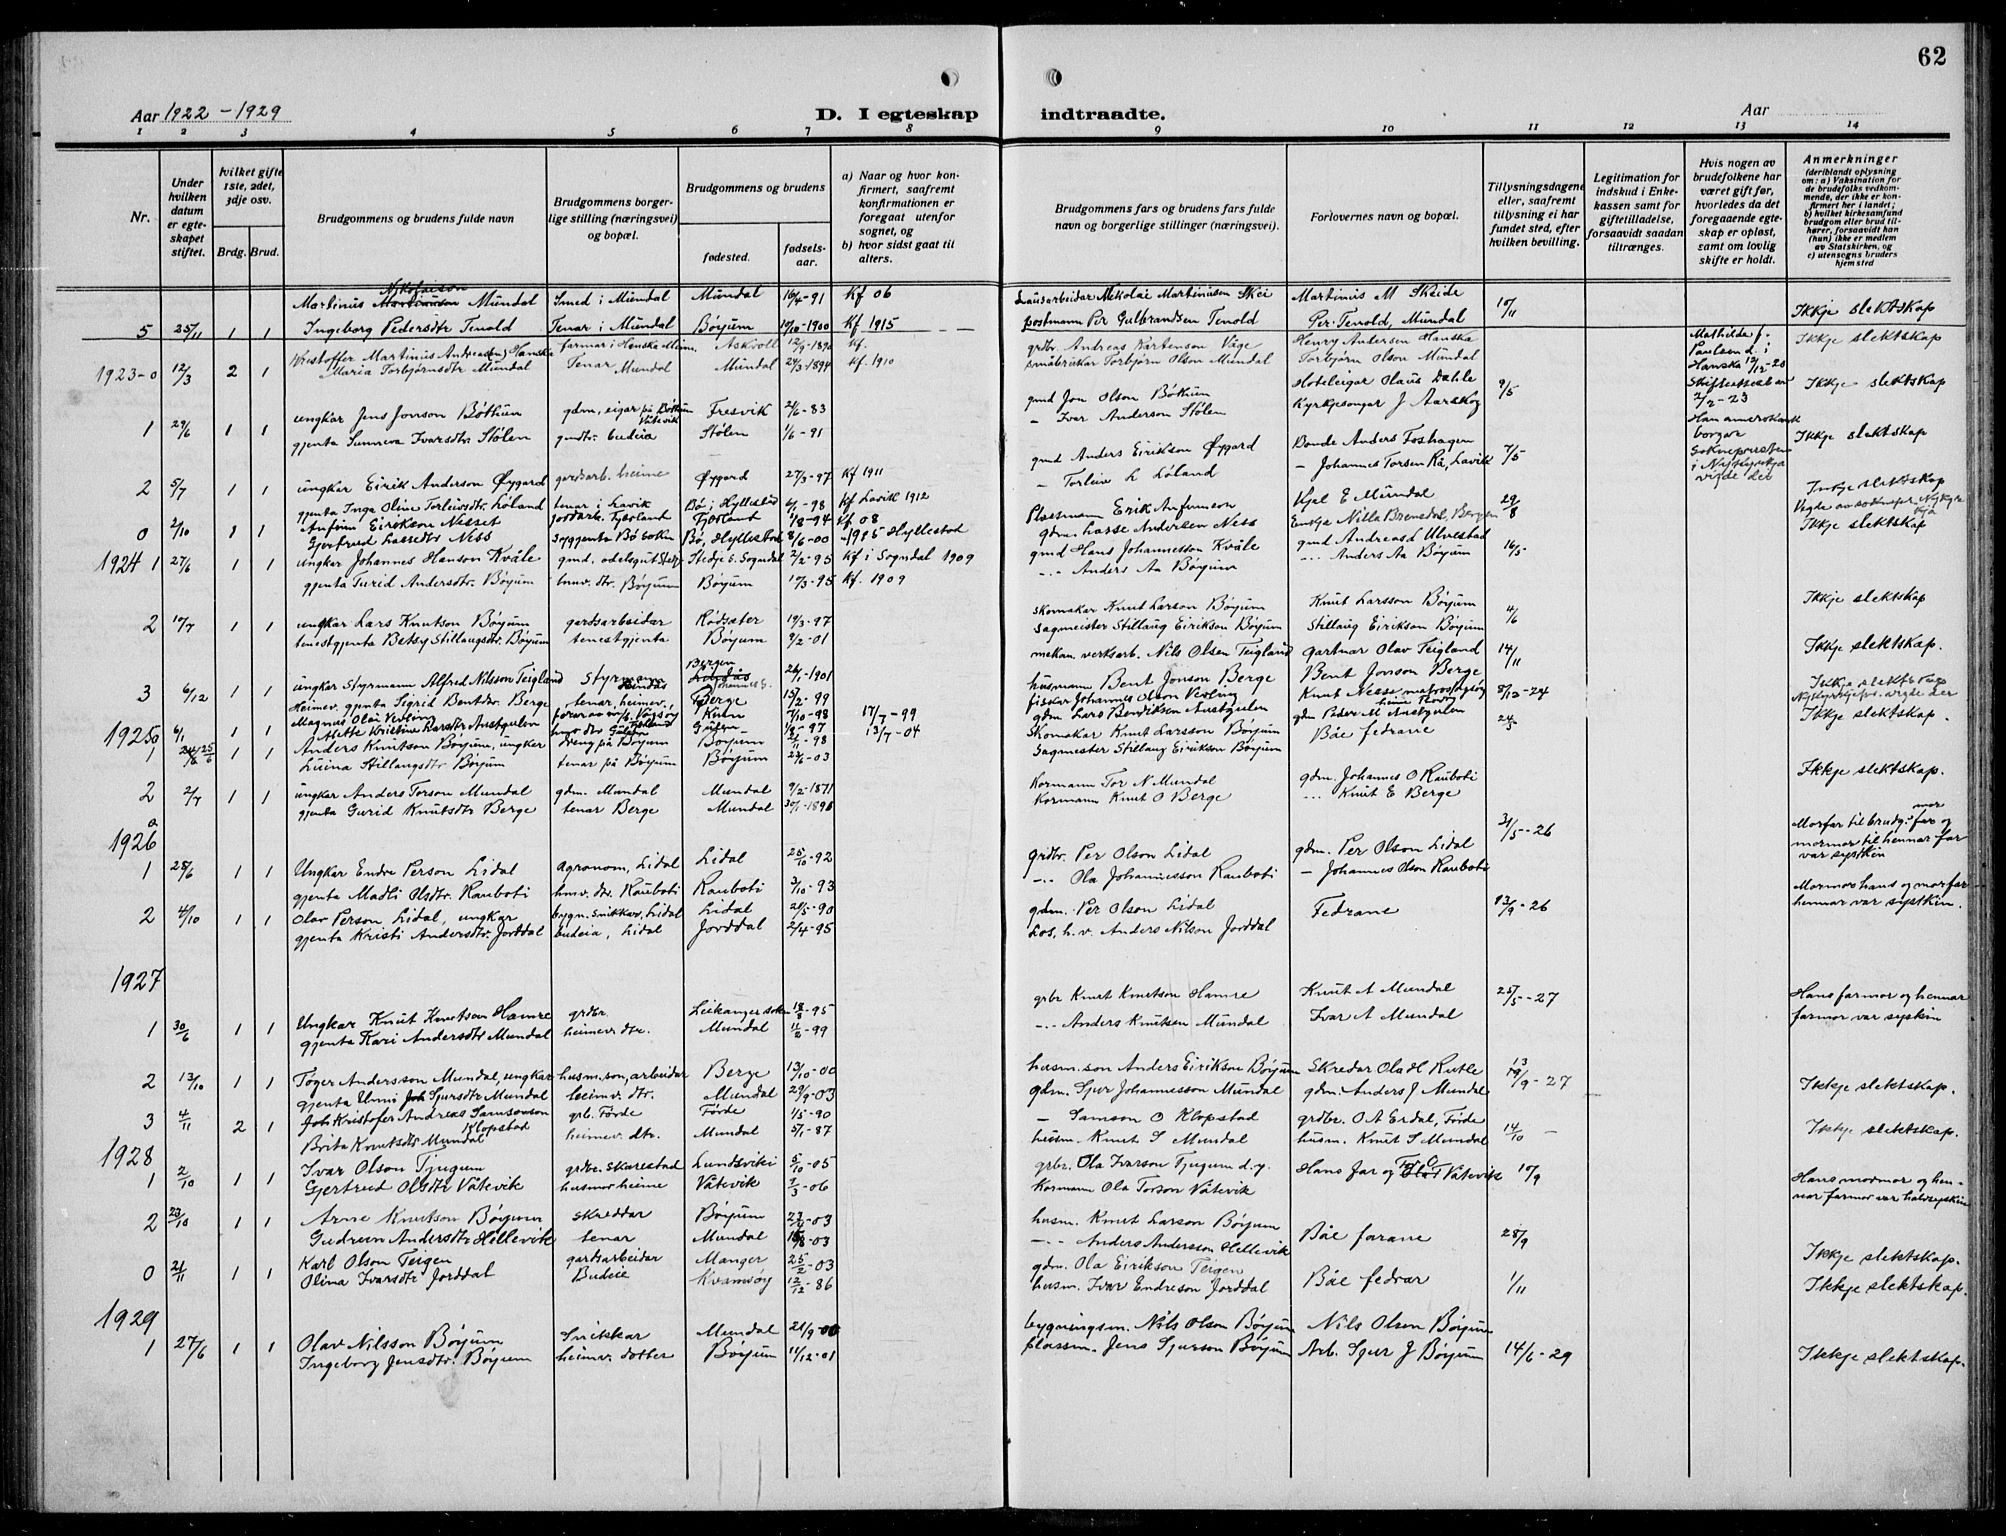 62
Aar 1922 - 1929
D. I egteskap indtraadte.
Aar
1 2 3 4 5 6 7 8 9 10 11 12 13 14
Nr.
Under hvilken datum er egteskapet stiftet.
hvilket gifte 1ste, 2det, 3dje osv.
Brdg. Brud.
Brudgommens og brudens fulde navn
Brudgommens borgerlige stilling (næringsvei) og bopæl.
Brudgommens og brudens
fødested.
fødselsaar.
a) Naar og hvor konfirmert, saafremt konfirmationen er foregaat utenfor sognet, og
b) hvor sidst gaat til alters.
Brudgommens fars og brudens fars fulde navn og borgerlige stillinger (næringsvei).
Forlovernes navn og bopæl.
Tillysningsdagene eller, saafremt tillysning ei har fundet sted, efter hvilken bevilling.
Legitimation for indskud i Enkekassen samt for giftetilladelse, forsaavidt saadan tiltrænges.
Hvis nogen av brudefolkene har været gift før, hvorledes da det foregaaende egteskap er opløst, samt om lovlig skifte er holdt.
Anmerkninger (deriblandt oplysning om: a) Vaksination for de brudefolks vedkommende, der ikke er konfirmert her i landet; b) hvilket kirkesamfund brudgom eller brud tilhører, forsaavidt han (hun) ikke er medlem av Statskirken, og c) utensogns bruders hjemsted
Nikolaison
Martinus Martinuson Mundal Smed i Mundal Mundal 16/4-91 Kf 06 Lausarbeidar Nikolai Martinusen Skei Martinus M Skeide 10/11 Ikkje slektskap
5 25/11 1 1 Ingeborg Pedersdtr Tenold Tenar i Mundal Bøyum 19/10-1900 Kf 1915 postmann Per Gulbrandsen Tenold Per Tenold, Mundal
Kristoffer Martinus Andreas(en) Hanska farmar i Hanska Minn. Askvoll 12/9-189 Kf. grdbr. Andreas Mortenson Våge Henry Andersen Hanska Mathilde f. Paulsen d. i Hanska 12/12-20 Ikkje slektskap
1923-0 12/3 2 1 Maria Torbjørnsdtr Mundal Tenar Mundal Mundal 24/3-1894 Kf. 1910 småbrukar Torbjørn Olson Mundal Torbjørn Olson Mundal Skifteattest av 2/2-23
ungkar Jens Jonson Bøthun gdm, eigar på Bøthun Vatevik Fresvik 21/6-83 gmd Jon Olson Bøthun Hoteleigar Olaus Dahle 9/5 Ikkje slektskap
1 29/6 1 1 gjenta Sunneva Ivarsdtr Stølen gmdtr. budeia Stølen 1/6-91 - Ivar Anderson Stølen Kyrkjesongar J Aarskog Han amerikansk borgar Sokneprusten i Nykyrkja vigde dei
ungkar Eirik Anderson Øygard gardsarb. heime Øygard 27/3-97 Kf 1911 gmd Anders Eirikson Øygard Bonde Anders Foshagen 7/5 Ikkje slektskap
2 5/7 1 1 gjenta Inga Oline Torleivsdtr. Løland tenar i Lavik Bø i Hyllestad 6/1-98 Kf Lavik 1912 - Torleiv L Løland - Johannes Torsen Rå, Lavik
Anfinn Eirikson Nesset Jordarb. Fjærland Fjærland 1/8-94 Kf 08 Plassmann Erik Anfinnson Kjel E Mundal 29/8 Ikkje slektskap
0 2/10 1 1 Gjertrud Lassedtr Ness Syggjenta Bø sokn Bø, Hyllestad 8/6-00 -1915 Hyllestad gdm. Lasse Andersen Ness Enkje Nilla Brensdal, Bergen Ikkje slektskap
1924 1 27/6 1 1 ungkar Johannes Hanson Kvåle gmd. odelsgut Stedje Stedje s. Sogndal 2/2-95 Kf i Sogndal 1909 gmd Hans Johannesson Kvåle gmd Andreas L Ulvestad 16/5
gjenta Turid Andersdtr. Bøyum hmv. dtr. Bøyum Bøyum 17/3-95 Kf. 1909 -..- Anders Aa Bøyum -..- Anders Aa Bøyum
2 10/7 1 1 ungkar Lars Knutson Bøyum gardsarbeidar Rødsæter 19/3-97 skomakar Knut Larson Bøyum Knut Larsson Bøyum 4/6 Ikkje slektskap
tenestgjenta Betsy Stillaugsdtr. Bøyum tenestgjenta Bøyum 9/2-01 Sagmeister Stillaug Eirikson Bøyum Stillaug Eirikson Bøyum
ungkar Styrmann Alfred Nilsson Teigland Styrmann Bergen 26/1-1901 mekan. verksarb. Nils Olsen Teigland Gartnar Olav Teigland 14/11 Ikkje slektskap
3 6/12 1 1 Heimev. gjenta Sigrid Bentsdtr. Berge tenar, heimev., Berge 15/2-99 husmann Bent Jonson Berge Bent Jonson Berge
1925 0 6/1 1 1 Magnus Olai Vedling Kinn 7/10-98 17/7-99 fiskar Johannes Olson Vedling 8/12-24 Ikkje slektskap
Alette Kristine Larsdtr Austgulen Gulen 1/8-97 13/7-04 gdm Lars Bendiksen Austgulen gdm Peder M Austgulen Ikkje slektskap.
1 25/6 1 1 Anders Knutson Bøyum, ungkar dreng på Bøyum Bøyum 2/11-98 Skomakar Knut Larsson Bøyum Båe fedrane 24/5
Luina Stillaugsdtr Bøyum tenar på Bøyum Bøyum 27/6-03 Sagmester Stillaug Eirikson Bøyum
2 2/7 1 1 ungkar Anders Torson Mundal gdm. Mundal Mundal 9/2-1871 Kormann Tor N Mundal gdm. Johannes O Rauboti Ikkje slektskap.
gjenta Gurid Knutsdtr Berge tenar Berge Mundal 30/1-1896 Kormann Knut O Berge -..- Knut E Berge
1926
1 28/6 1 1 Ungkar Endre Person Lidal agronom, Lidal Lidal 25/10-92 grdbr. Per Olson Lidal gdm. Per Olson Lidal 31/5-26 Morfar til brudg. far og mormor til hennar far var systkin
gjenta Madli Olsdtr. Rauboti hmv. dtr. Rauboti Rauboti 3/10-93 -..- Ola Johannesson Rauboti - Johannes Olson Rauboti
2 4/10 1 1 Olav Person Lidal, ungkar bygn. snikkar, Lidal Lidal 21/5-90 gdm. Per Olson Lidal Fedrane 13/9-26 Mormor hans og morfar hennar var systkin.
gjenta Kristi Andersdtr. Jorddal budeia, Lidal Jorddal 2/4-95 Los, h.v. Anders Nilson Jorddal
1927
1 30/6 1 1 Ungkar Knut Knutson Hamre grdbr. Leikanger sokn 18/8-95 grbr Knut Knutson Hamre Knut A Mundal 25/5-27 Hans farmor og hennar farmor var syskin
gjenta Kari Andersdtr Mundal heimev. dtr. Mundal 11/2-99 -..- Anders Knutsen Mundal Ivar A Mundal
2 13/10 1 1 Toger Andersson Mundal, ungkar husm.son, arbeidar Berge 13/10-00 husm.son Anders Eirikson Bøyum Skredar Ola H Rutle 13/19/9-27 Ikkje slektskap.
gjenta Unni Sjursdtr Mundal heimv. dtr. Mundal 29/9-03 gdm. Sjur Johannesson Mundal gdm. Anders J Mundal
3 4/11 2 1 Joh Kristofer Andreas Samsonson Klopstad grb. Førde Førde 1/5-90 - Samson O Klopstad grdbr. O A Erdal, Førde 14/10 - Ikkje slektskap.
Brita Knutsdtr Mundal heimev. dtr. Mundal 5/1-87 husm. Knut S Mundal husm. Knut S Mundal
1928
1 2/10 1 1 Ivar Olson Tjugum grdbr. Skarestad Lundsviki 5/10-05 grbr. Ola Ivarson Tjugum d.y. Hans far og Vatevik 10/9 Hans mormor og hennar farmor var halvsyskin
Gjertrud Olsdtr Vatevik husmor heime Vatevik 9/3-06 Kormann Ola Torson Vatevik
2 23/10 1 1 Arne Knutson Bøyum skreddar Bøyum 27/4-03 husm. Knut Larson Bøyum Båe farane 28/9
Gudrun Andersdtr Hellevik tenar Mundal -03 -..- Anders Andersson Hellevik Ikkje slektskap.
0 21/11 1 1 Karl Olson Teigen gardsarbeidar Manger 25/2-03 gdm. Ola Eirikson Teigen Båe fedrar 1/11 Ikkje slektskap.
Olina Ivarsdtr Jorddal Budeie Kvamsøy 12/12-86 husm. Ivar Endreson Jorddal
1929
1 27/6 1 1 Olav Nilsson Bøyum Snikkar Mundal 21/9-00 bygningsm. Nils Olson Bøyum Nils Olsen Bøyum
Ingeborg Jensdtr. Bøyum heimv. dotter Bøyum 11/12-01 plassm. Jens Sjurson Bøyum Arb. Sjur J Bøyum 14/6-29 Ikkje slektskap.